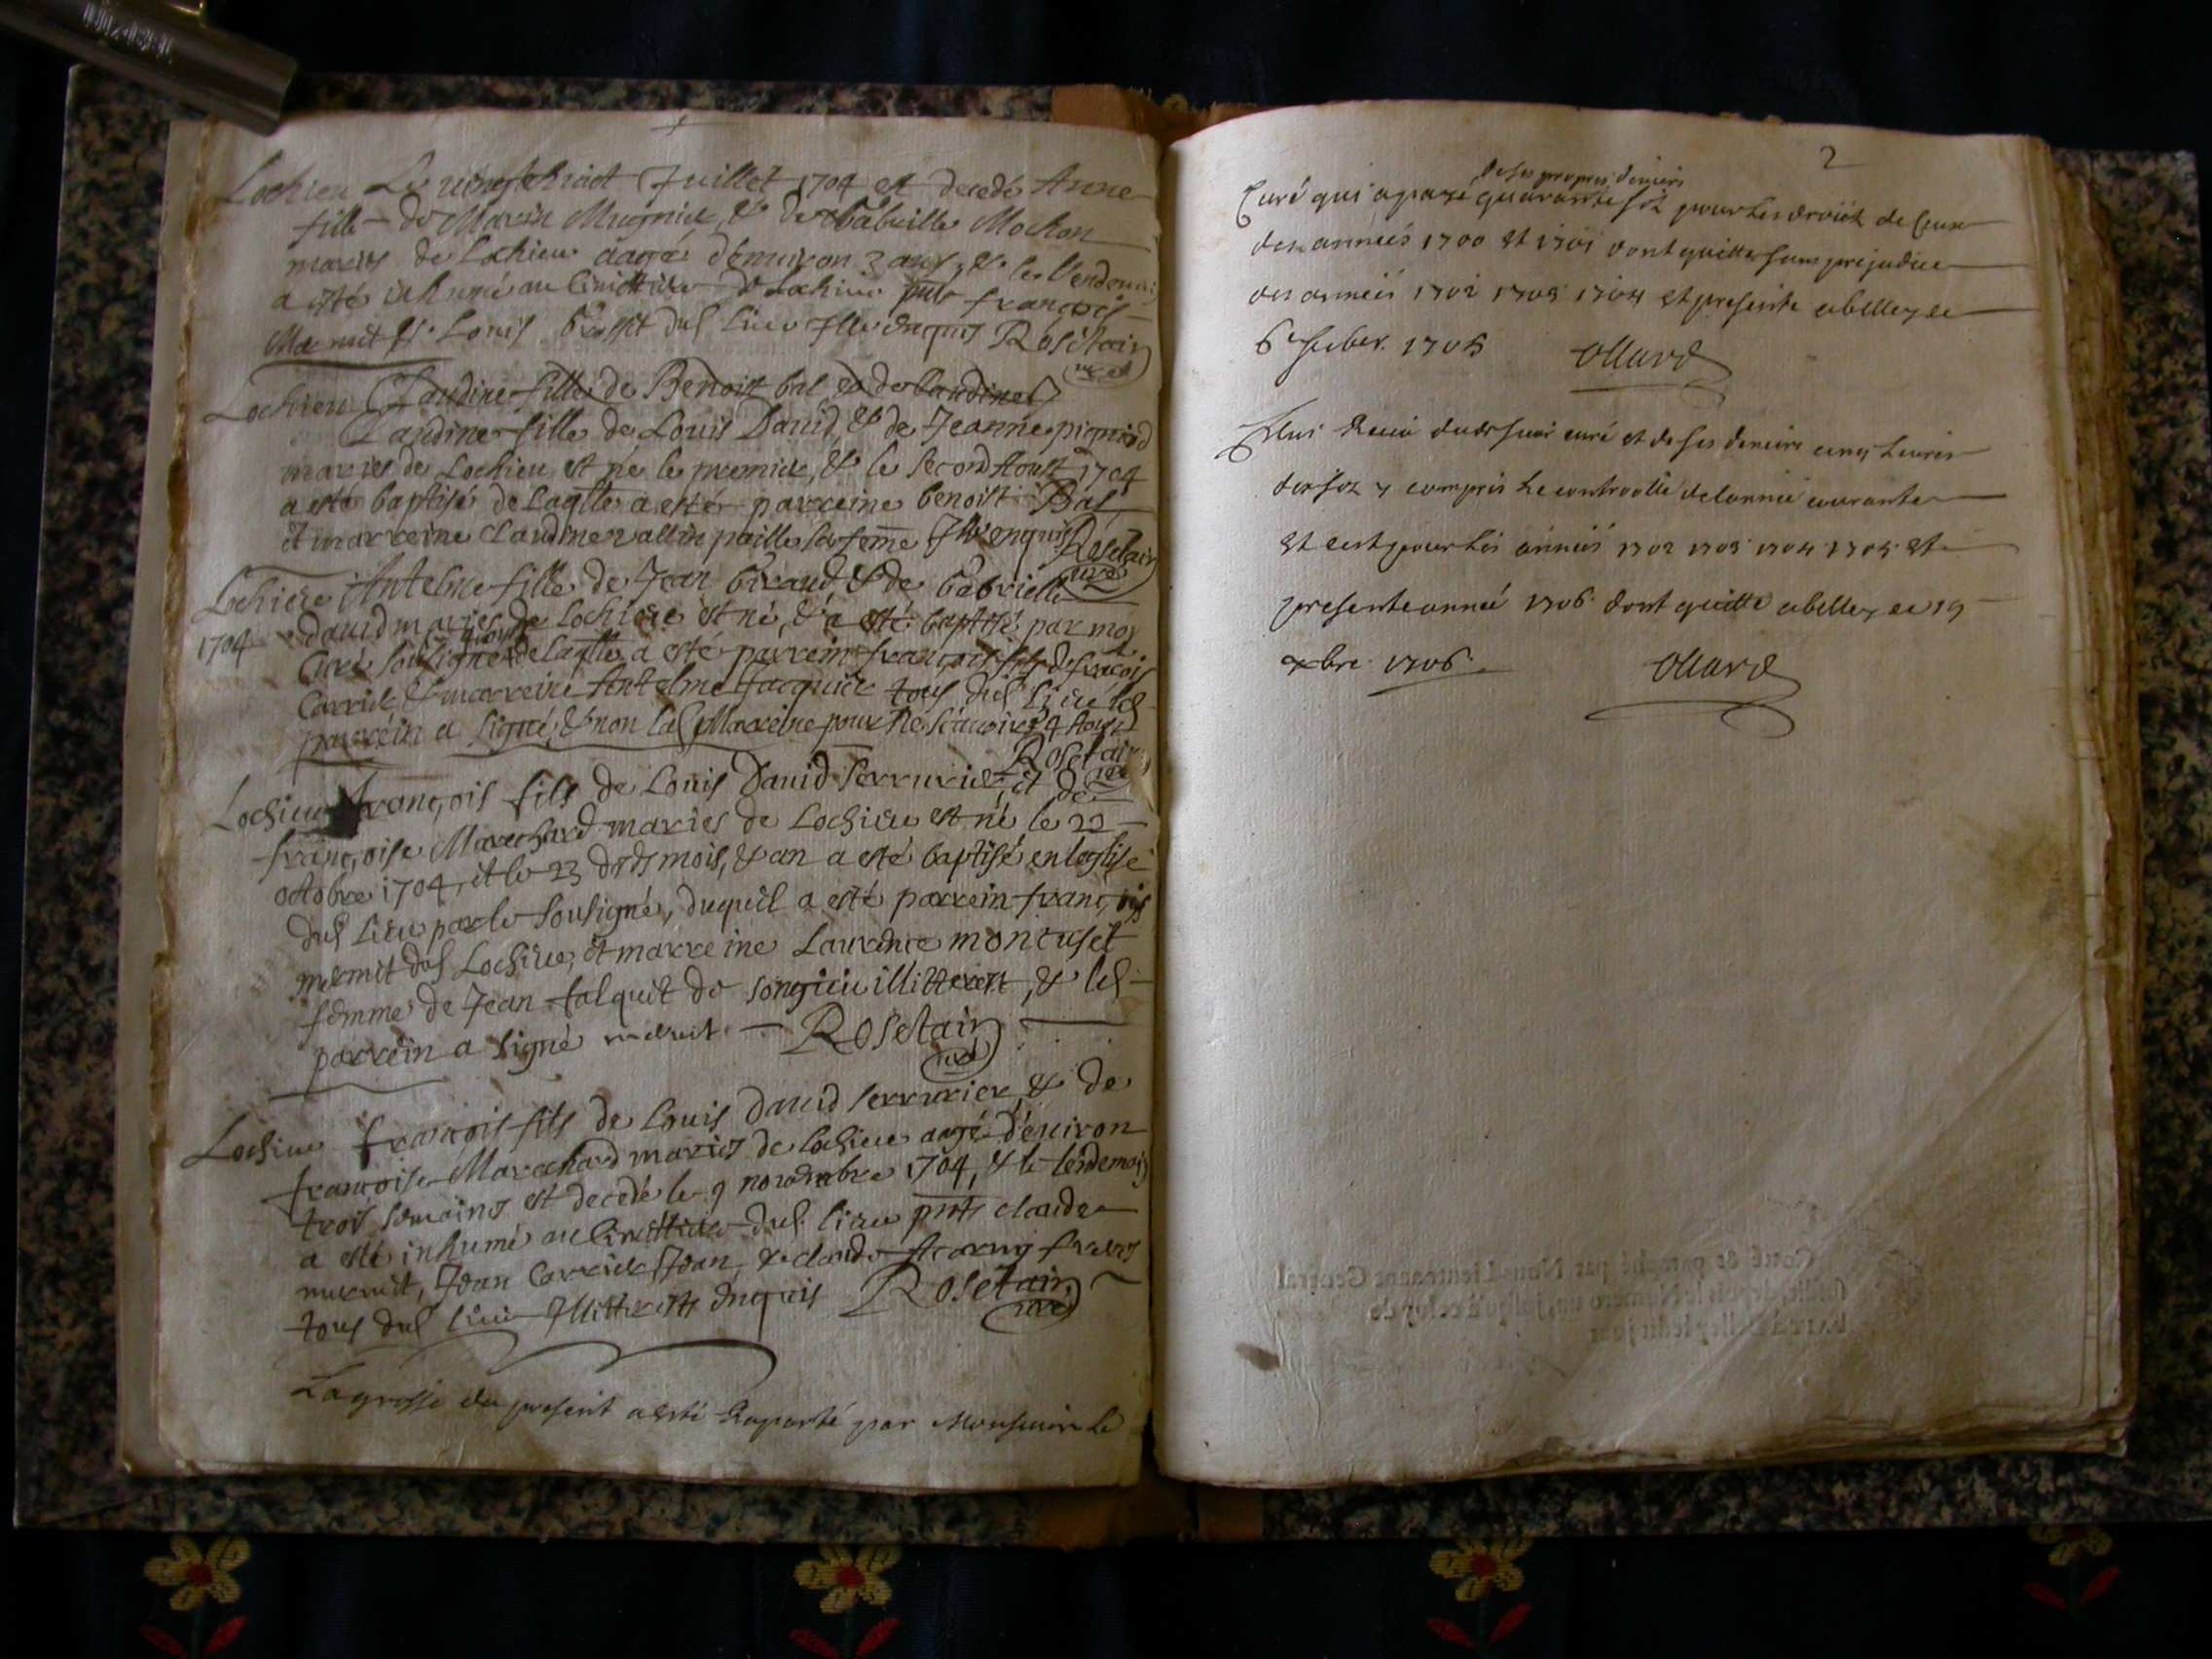 Lochieu Le vingt huict Juillet 1704 est decedé Anne
fille de Marin Mugnier, & de Gabrielle Mochon
mariés de Lochieu aagé d'environ 3 ans, & le lendemain
a esté inhumé au Cimittiere de Lochieu pnts françois
Mermet & Louis dud lieu Ill. enquis Rosetain
curé
Lochieu Claudine fille de Benoist bal et de Claudine
Claudine fille de Louis David, & de Jeanne
mariés de Lochieu est né le premier, & le second Aoust 1704
a esté baptisé de laqlle a esté parreine benoist Bal
et marreine Claudine vallin paille sa feme Ill. enquis Rosetain
curé
Lochieu Antelme fille de Jean & de Gabrielle
1704 david mariés de Lochieu est né, & a esté baptisé par moy
Curé soussigné de laqlle a esté parrein françois fils de françois
Carrier & marreine Antelme Jacquier tous dud lieu led
parrein a signé, & non lad Marreine pour ne sçavoir 24 Aoust
Rosetain
curé
Lochieu françois fils de Louis David serrurier, et de
françoise Marechard mariés de Lochieu est né le 22
octobre 1704, et le 23 desds mois, & an a esté baptisé en leglise
dud Lieu par le sousigné, duquel a esté parrein françois
mermet dud Lochieu, et marreine Laurence montuset
femme de Jean falquet de songieu illitterest, & led
parrein a signé mermet Rosetain
curé
Lochieu françois fils de Louis david serrurier, & de
françoise Marechard mariés de lochieu aagé d'environ
trois semaines est decedé le 9 novembre 1704, & le lendemain
a esté inhumé au Cimittiere dud lieu pnts claude
mermet, Jean Carrier, Jean, & claude freres
tous dud lieu Illitterests enquis Rosetain
curé
La grosse du present a esté Raporté par Monsieur le
2
de ses propres deniers
Curé qui a payé quarante solz pour les droicts de
des années 1700 et 1701 dont quitte sans prejudice
des années 1702 1703 1704 et presente a belley ce
1705 Ollard
Plus Receu dudt sieur curé et de ses deniers cinq livres
dix solz y compris le controolle de lannée courante
et cest pour les années 1702 1703 1704 1705 et
presente année 1706 dont quitte a belley ce 19
xbre 1706. Ollard
Cotté & paraphé par Nous Lieutenant General